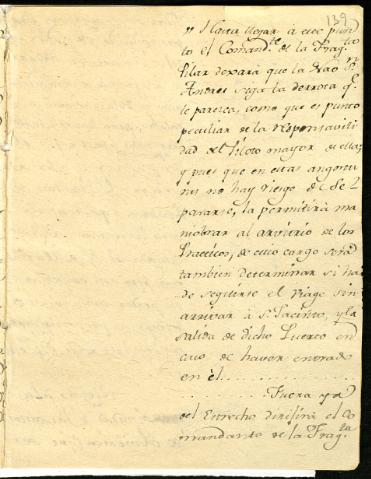 139
" Hasta llegar á este pun
to el Comand.te de la Frag.ta
Pilar dexará que la Nao S.n
Andres siga la derrota q.e
le paresca, como que es punto
peculiar de la responsavili
dad del Piloto mayor de ella,
y pues que en estas angostu
ras no hay riesgo de Se
pararse, la permitirá ma
niobrar al arvitrio de los
Practicos, de cuio cargo será
tambien determinar si ha
de seguirse el viage sin
arrivar á S.n Jacinto, y la
salida de dicho Puerto en
caso de haver entrado
en èl
Fuera ya
del Estrecho dirijirá el Co
mandante de la Frag.ta